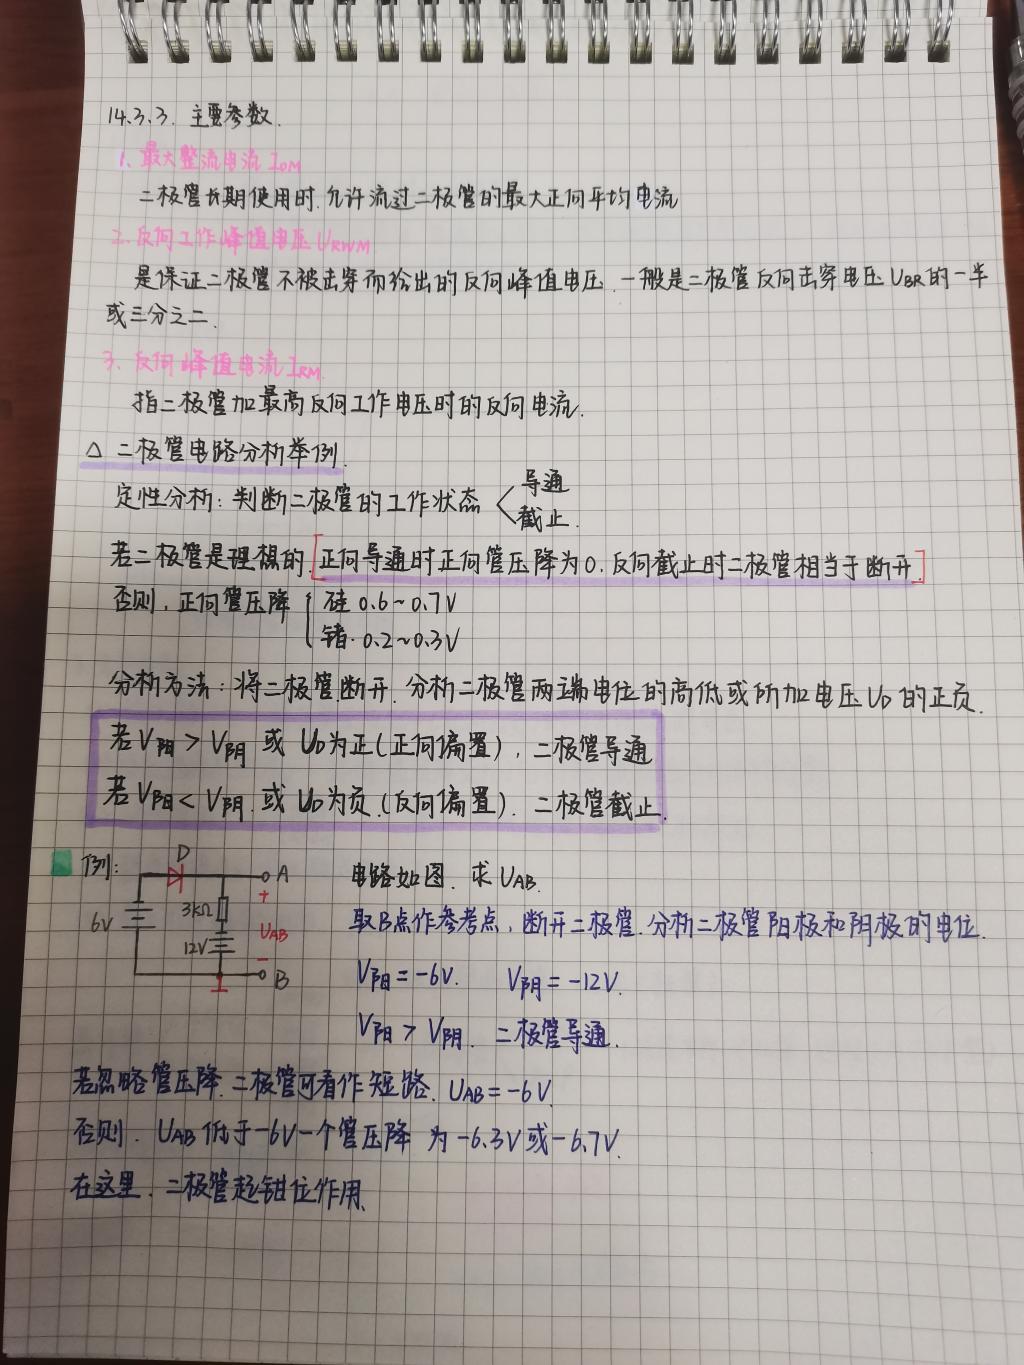 14.3.3. 主要参数.
1、最大整流电流 IOM
二极管长期使用时.允许流过二极管的最大正向平均电流
2.反向工作峰值电压URWM
是保证二极管不被击穿而给出的反向峰值电压.一般是二极管反向击穿电压UBR的一半
或三分之二.
3、反向峰值电流IRM.
指二极管加最高反向工作电压时的反向电流.
△ 二极管电路分析举例.
定性分析:判断二极管的工作状态
导通
截止.
若二极管是理想的.[正向导通时正向管压降为0.反向截止时二极管相当于断开.]
否则,正向管压降
硅 0.6~0.7V
锗.0.2~0.3V
分析方法:将二极管断开.分析二极管两端电位的高低或所加电压UD的正负.
若V阳>V阴 或 UD为正(正向偏置),二极管导通
若V阳<V阴.或 UD为负.(反向偏置).二极管截止.
例:
D
A
6V
3kΩ
12V
+
UAB
−
B
电路如图.求UAB.
取B点作参考点,断开二极管.分析二极管阳极和阴极的电位.
V阳=-6V. V阴=-12V.
V阳>V阴. 二极管导通.
若忽略管压降.二极管可看作短路.UAB=-6V.
否则.UAB低于-6V一个管压降 为-6.3V或-6.7V.
在这里.二极管起钳位作用.